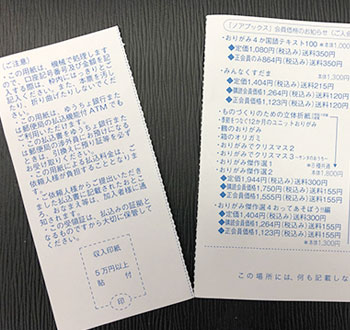 （ご注意）
・この用紙は、機械で処理します
ので、口座記号番号及び金額を記
入する際は、枠内にはっきりとご
記入ください。また、本票を汚し
たり、折り曲げたりしないでくだ
さい。
・この用紙は、ゆうちょ銀行また
は郵便局の払込機能付きATMでも
ご利用いただけます。
・この払込書を、ゆうちょ銀行また
は郵便局の渉外員にお預けになる
ときは、引換えに預り証を必ず
お受け取りください。
・この用紙による払込料金は、ご
依頼人様が負担することとなりま
す。
・ご依頼人様からご提出いただき
ました払込書に記載されたおとこ
ろ、おなまえ等は、加入者様に通
知されます。
・この受領証は、払込みの証拠と
なるものですから大切に保管して
ください。
収入印紙
5万円以上
貼　付
印
「ノアブックス」会員価格のお知らせ（ご入会
・おりがみ4か国語テキスト100
◆定価1,080円（税込み）送料350円
◆正会員のみ864円（税込み）送料350円
・みんなくすだま
本体1,300円
◆定価1,404円（税込み）送料215円
◆講読会員価格1,264円（税込み）送料120円
◆正会員価格1,123円（税込み）送料120円
・ものづくりのための立体折紙
・季節をつなぐ12か月のユニットおりがみ
・鶴のおりがみ
・箱のオリガミ
・おりがみでクリスマス2
・おりがみでクリスマス3
・おりがみ傑作選1
・おりがみ傑作選2
本体1,800円
◆定価1,944円（税込み）送料300円
◆講読会員価格1,750円（税込み）送料155円
◆正会員価格1,555円（税込み）送料155円
・おりがみ傑作選4おってあそぼう!!編
◆定価1,404円（税込み）送料300円
◆講読会員価格1,264円（税込み）送料155円
◆正会員価格1,123円（税込み）送料155円
この場所には、何も記載しな